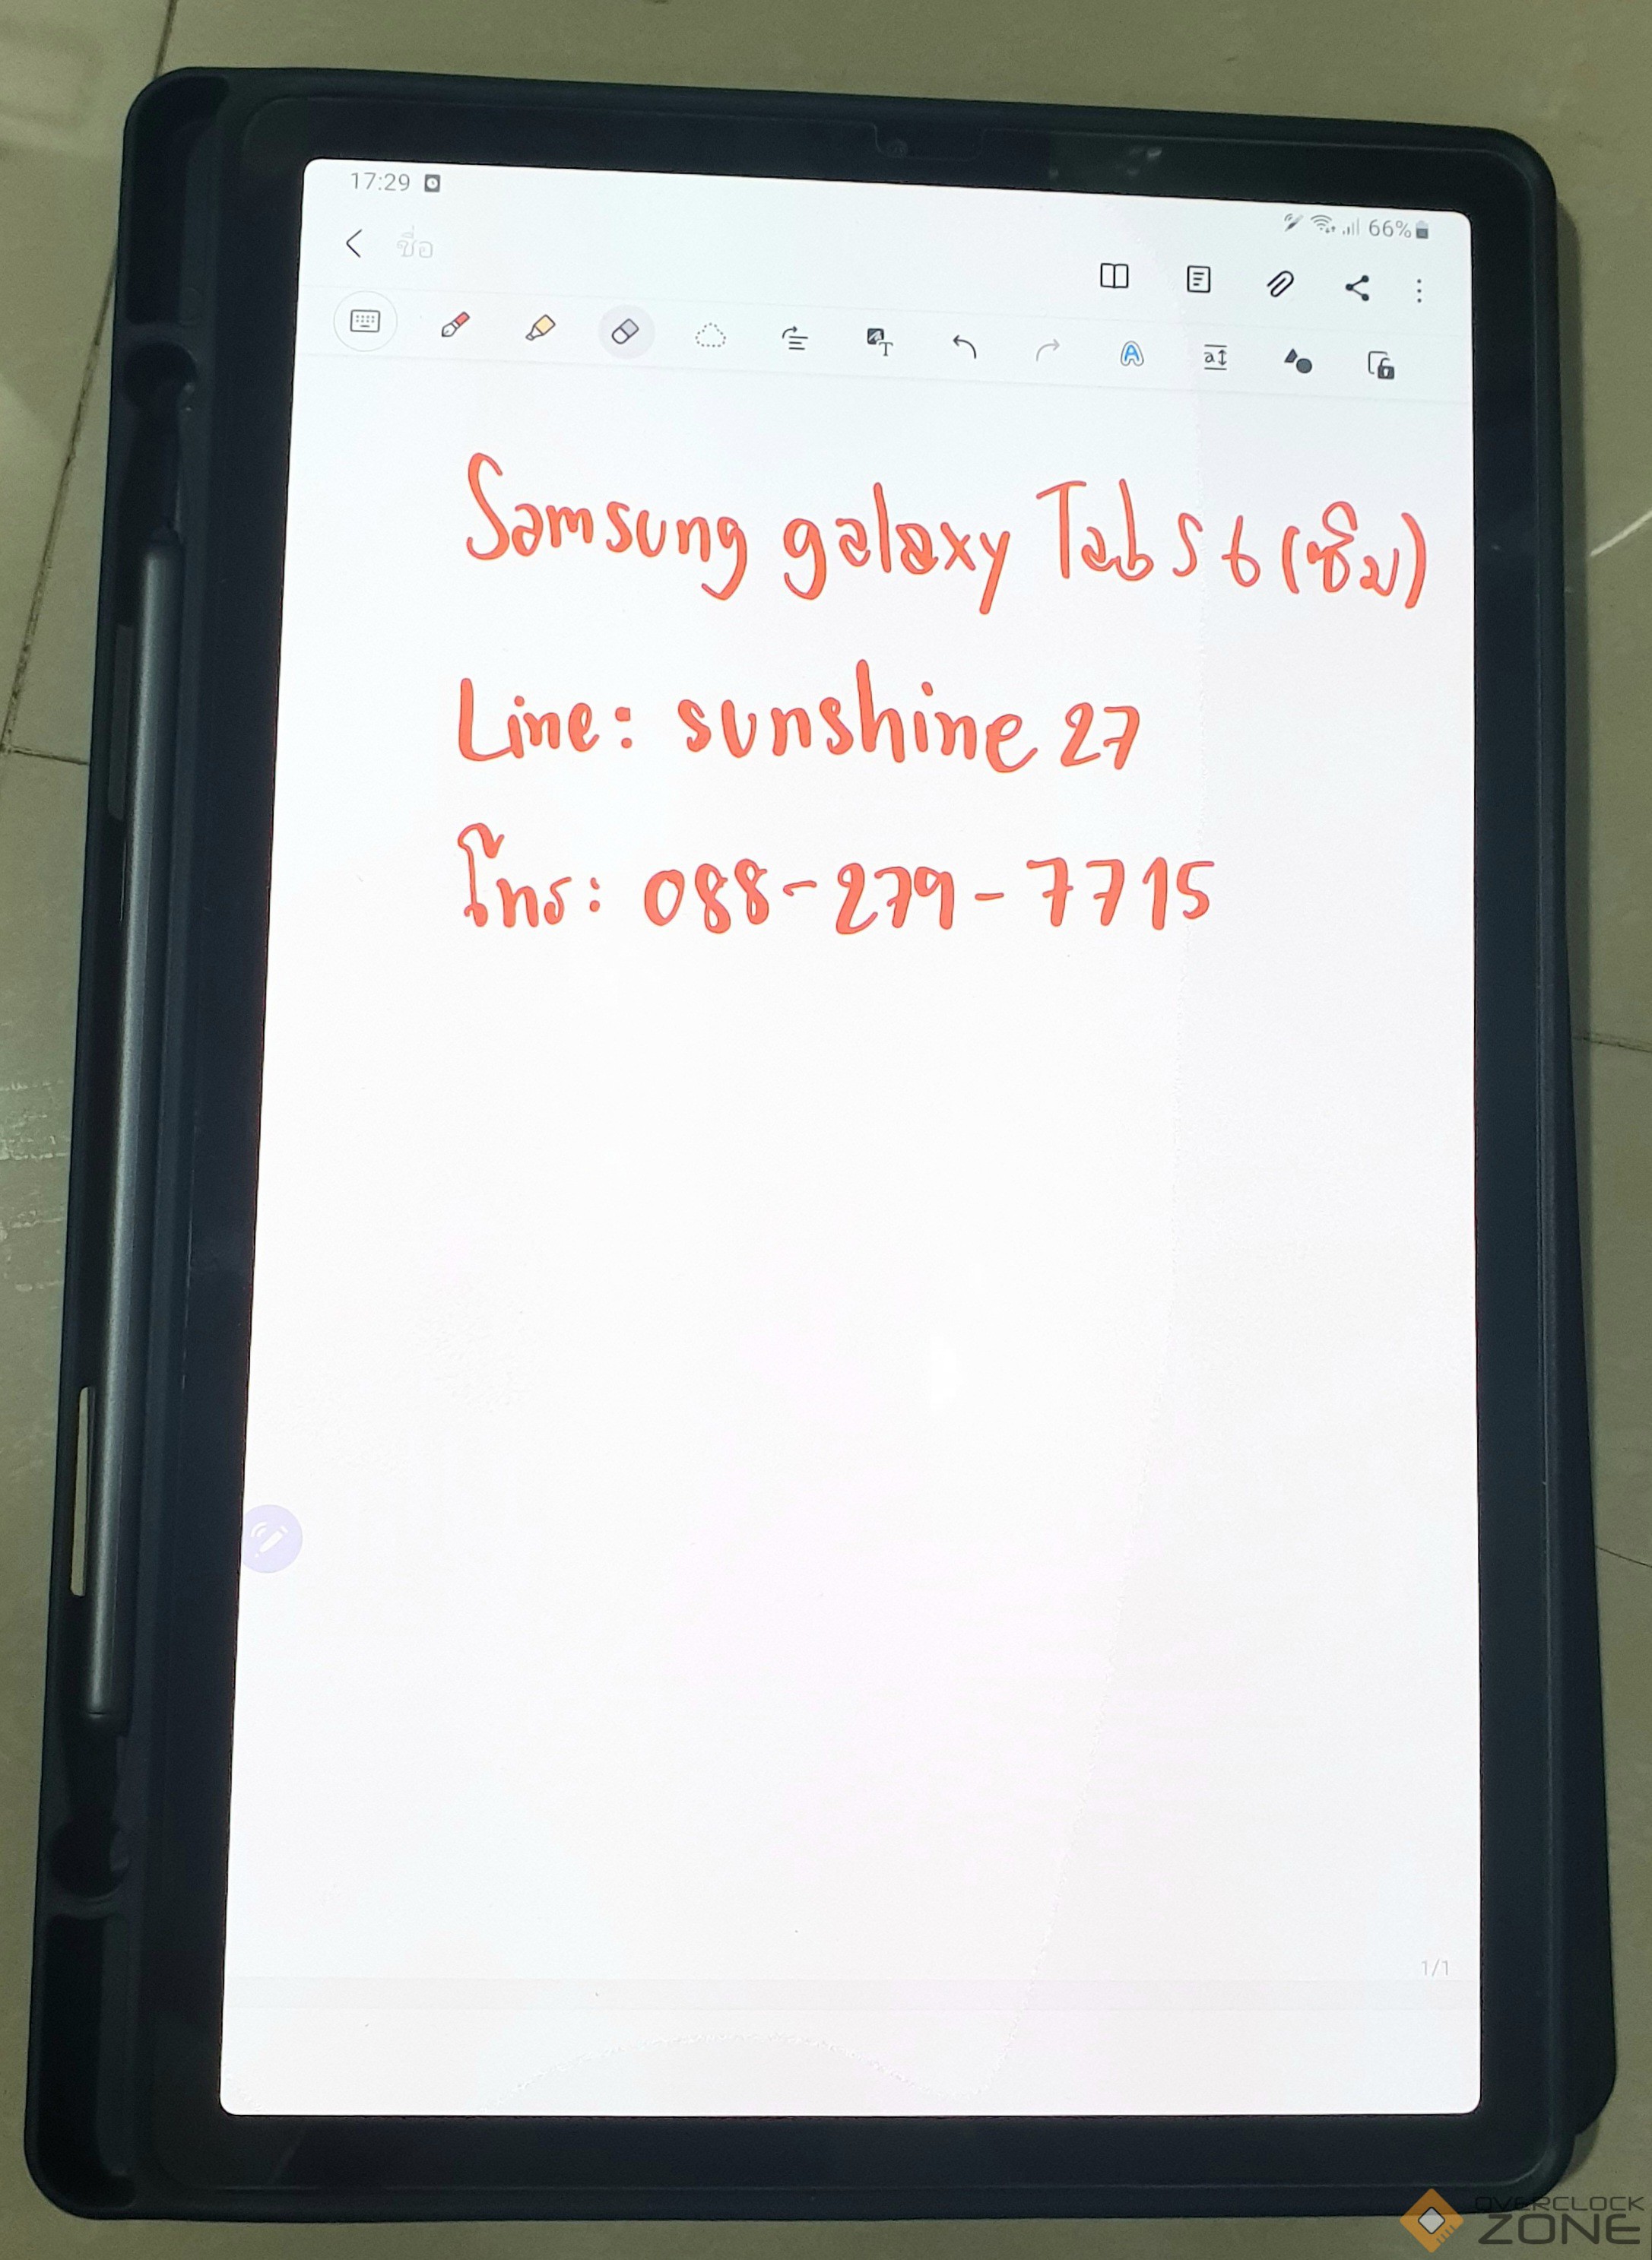 17:29
66%
ชื่อ
Samsung galaxy Tab S6 (ซิม)
Line: sunshine 27
โทร: 088-279-7715
1/1
OVERCLOCK
ZONE